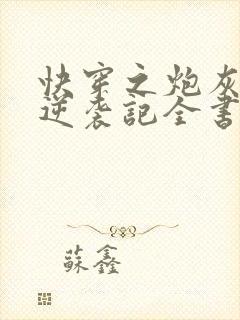 快穿之炮灰
逆袭記全書
蘇鑫